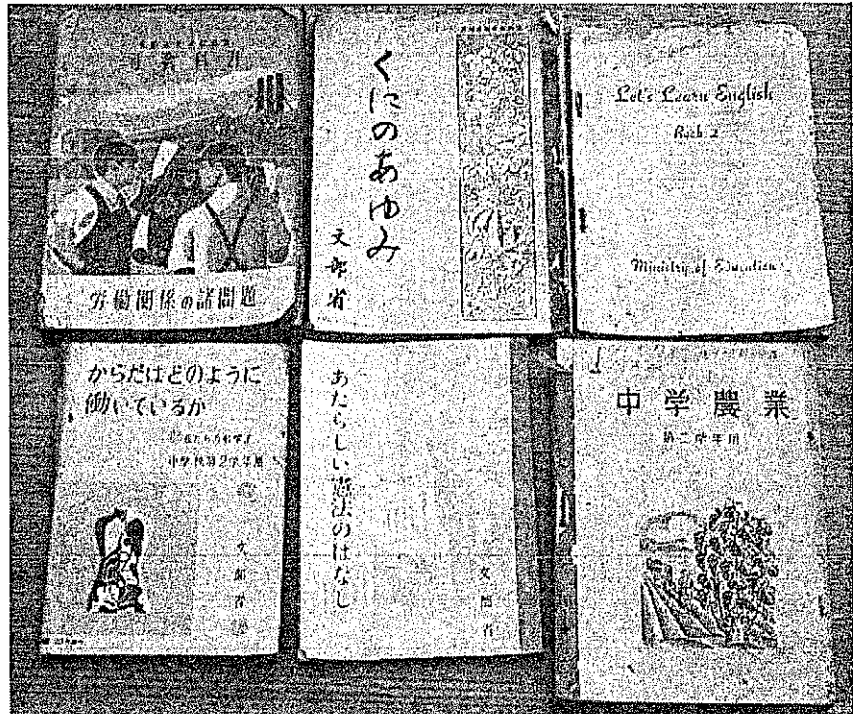 労働関係の諸問題
くにのあゆみ
文部省
Let's Learn English
Book 2
Ministry of Education
からだはどのように
働いているか
中学校用2学年用
文部省
あたらしい憲法のはなし
文部省
中学農業
第二学年用